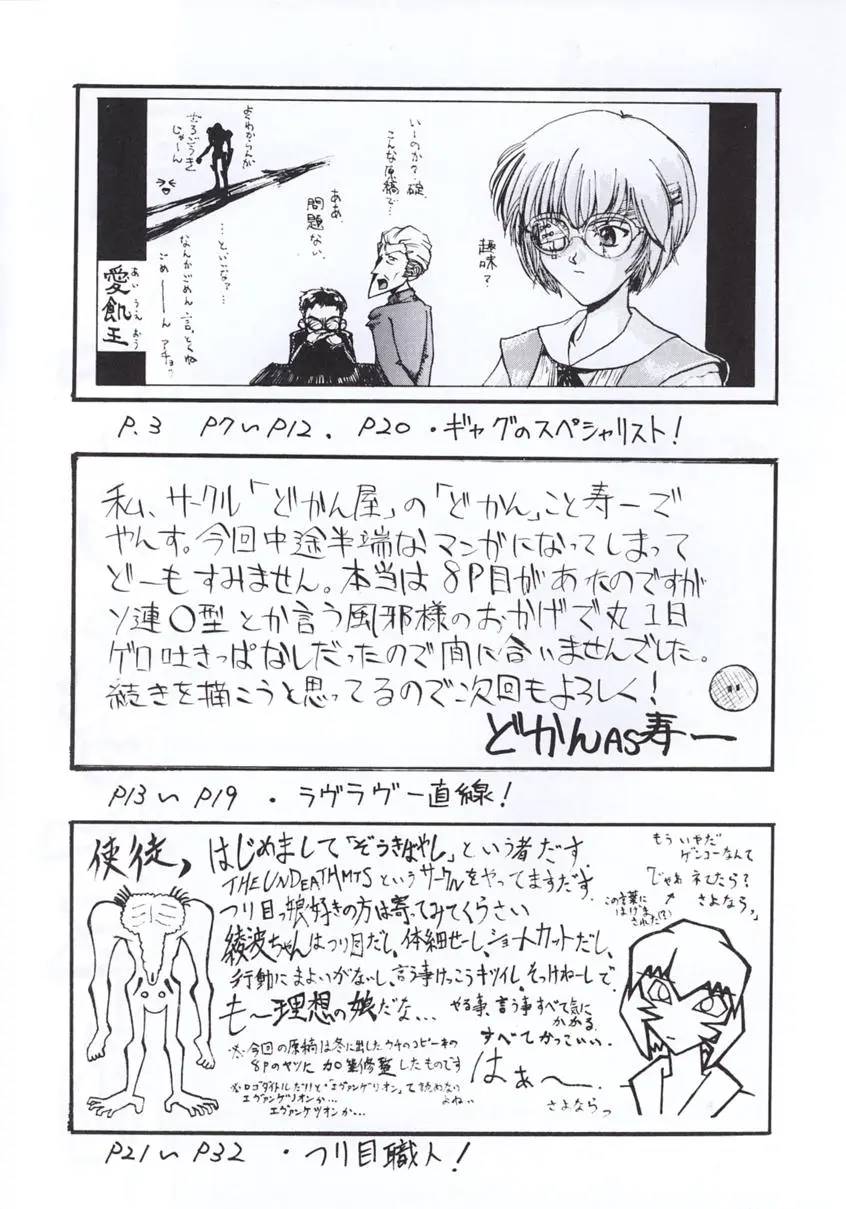 いーのか?碇
こんな原稿で…
ああ、
問題ない。
趣味?
よくわからんが
じゃーん
…といいな?…
なんかごめん
ごめーーん
あいうえおう
愛飢王
P.3 P7〜P12. P20・ギャグのスペシャリスト!
私、サークル「どかん屋」の「どかん」こと寿一で
やんす。今回中途半端なマンガになってしまって
どーもすみません。本当は8P目があたのですが
ソ連〇型とか言う風邪様のおかげで丸1日
ゲロ吐きっぱなしだったので間に合いませんでした。
続きを描こうと思ってるので次回もよろしく!
どかんAS寿一
P13〜P19・ラヴラヴ一直線!
使徒、
はじめまして「ぞうきばやし」という者だす。
THE UNDEATHMTSというサークルをやってますだす。
つり目っ娘好きの方は寄ってみてくらさい
綾波ちゃんはつり目だし、体細せーし、ショートカットだし、
行動にまよいがないし、言う事けっこうキツイし、そっけねーしで、
も〜理想の娘だな…
やる事、言う事すべて気に
かかる。
すべてかっこいい。
はぁ〜
さよならっ
※今回の原稿は冬に出したウチのコピー本の
8Pのヤツに加筆修整したものです
※ロゴタイトルだけど・「エヴァンゲリオン」て読めない
よねぃぃ
エヴァンゲリオンか…
エヴァンケツオンか…
もういやだ
ゲンコーなんて
「じゃあネてたら?
さよならっ」
この言葉に
はげま
された(?)
P21〜P32・つり目職人!